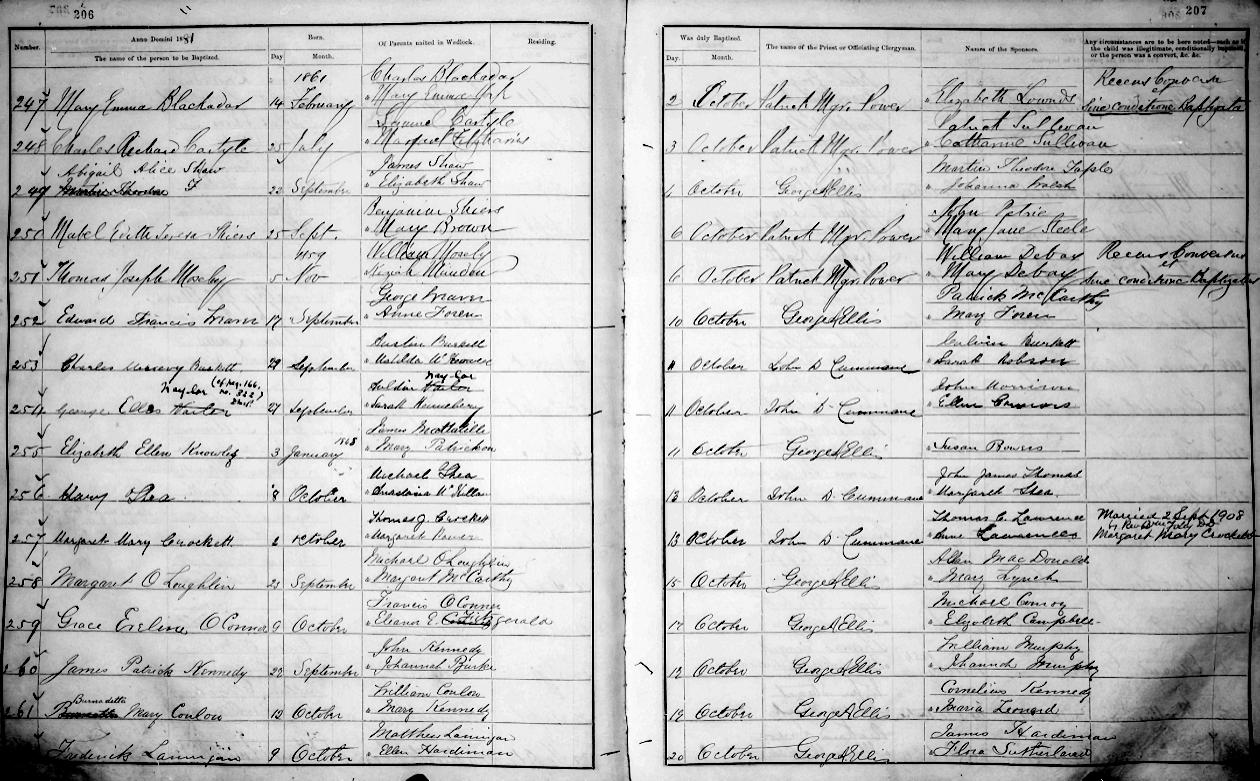 206
Anno Domini 1881
Born.
Number.
The name of the person to be Baptized.
Day
Month.
Of Parents united in Wedlock.
Residing.
1861
Charles Blackadar
247 Mary Emma Blackadar 14 February " Mary Emma York
Samuel Carlyle
248 Charles Richard Carlyle 25 July " Margaret
Abigail Alice Shaw
James Shaw
249 22 September " Elizabeth Shaw
Benjamin Shiers
250 Mabel Edith Teresa Shiers 25 Sept. " Mary Brown
William Mosely
251 Thomas Joseph Mosely 5 Nov
George Mann
252 Edward Francis Mann 17 September " Anne Foren
Burkett
253 Charles Burkett 29 September " Matilda
Naylor (cf. pag. 166. no. 322
Naylor
254 George Ellis 27 September " Sarah Henneberry
James
255 Elizabeth Ellen Knowles 3 January 1868 " Mary Patrickson
Michael Shea
256 Mary Shea 8 October " Anastasia
Thomas J. Crockett
257 Margaret Mary Crockett 2 October " Margaret Power
Michael O'Loughlin
258 Margaret O'Loughlin 23 September " Margaret McCarthy
Francis O'Connor
259 Grace O'Connor 9 October " Eleanor E. Fitzgerald
John Kennedy
260 James Patrick Kennedy 22 September " Johannah Burke
William Conlow
Burnadetta
261 Mary Conlow 13 October " Mary Kennedy
Matthew Lannigan
Frederick Lannigan 9 October " Ellen Hardiman
207
Was duly Baptized.
Day.
Month.
The name of the Priest or Officiating Clergyman.
Names of the Sponsors.
Any circumstances are to be here noted—such as if the child was illegitimate, conditionally baptized, or the person was a convert, &c. &c.
Recens Conversa
et
2 October Patrick Mgr. Power " Elizabeth Lownds sine conditione Baptizata
Patrick Sullivan
3 October Patrick Mgr. Power " Catharine Sullivan
Martin Theodore
4 October George A Ellis " Johanna Walsh
John Petrie
6 October Patrick Mgr. Power " Mary Jane Steele
William Debay Recens Conversus
et
6 October Patrick Mgr. Power " Mary Debay sine conditione Baptizatus
Patrick McCarthy
10 October George A Ellis " Mary Foren
Calvin Burkett
11 October John D. Cummane " Sarah Robson
John Morrison
11 October John D. Cummane " Ellen Connors
11 October George A Ellis " Susan Bowes
John James Thomas
13 October John D. Cummane " Margaret Shea
Thomas C. Lawrence Married 2 Sept 1908
13 October John D. Cummane " Anne Lawrence Margaret Mary Crockett
Allan MacDonald
15 October George A Ellis " Mary Lynch
Michael Conroy
17 October George A Ellis " Elizabeth Campbell
William Murphy
17 October George A Ellis " Johannah Murphy
Cornelius Kennedy
19 October George A Ellis " Maria Leonard
James Hardiman
20 October George A Ellis " Flora Sutherland